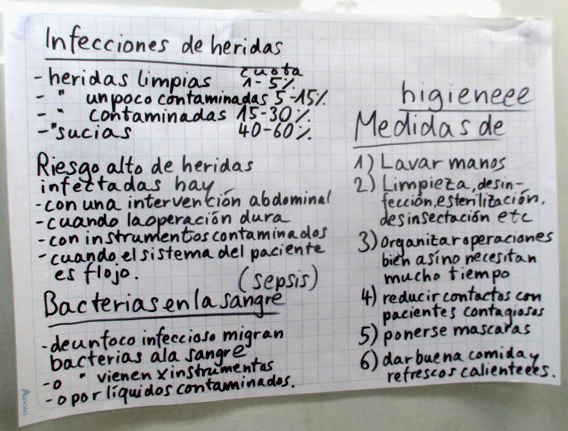 Infecciones de heridas
cuota
- heridas limpias 1-5%
- " un poco contaminadas 5-15%
- " contaminadas 15-30%
- " sucias 40-60%
Riesgo alto de heridas
infectadas hay
- con una intervención abdominal
- cuando la operación dura
- con instrumentos contaminados
- cuando el sistema del paciente
es flojo.
(sepsis)
Bacterias en la sangre
- de un foco infeccioso migran
bacterias a la sangre
- o " vienen x instrumentos
- o por líquidos contaminados.
higieneee
Medidas de
1) Lavar manos
2) Limpieza, desin-
fección, esterilización,
desinsectación etc
3) organizar operaciones
bien asíno necesitan
mucho tiempo
4) reducir contactos con
pacientes contagiosos
5) ponerse mascaras
6) dar buena comida y
refrescos calienteees.